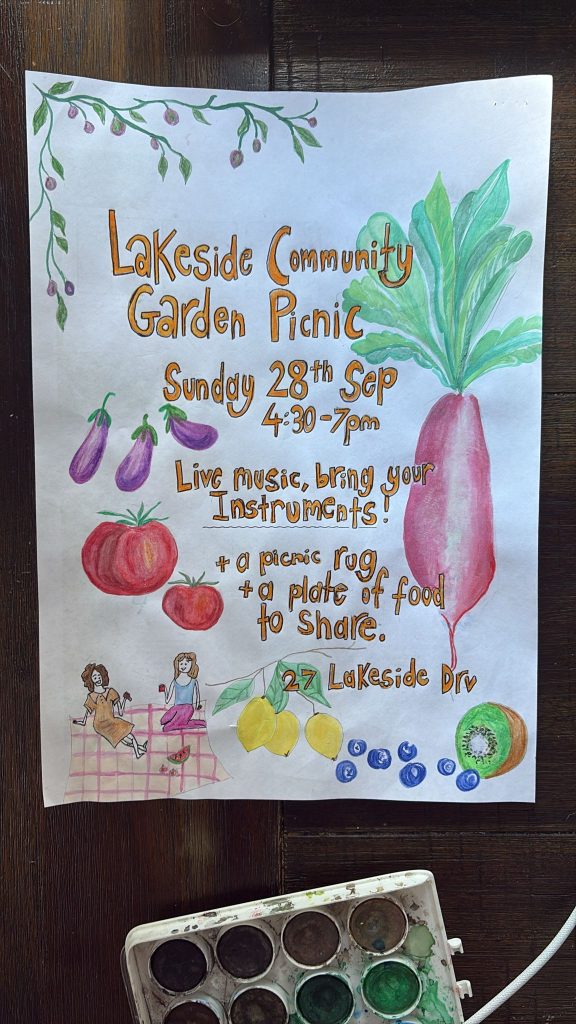 Lakeside Community
Garden Picnic
Sunday 28th Sep
4:30-7pm
Live music, bring your
Instruments!
+ a picnic rug
+ a plate of food
to share.
27 Lakeside Drv